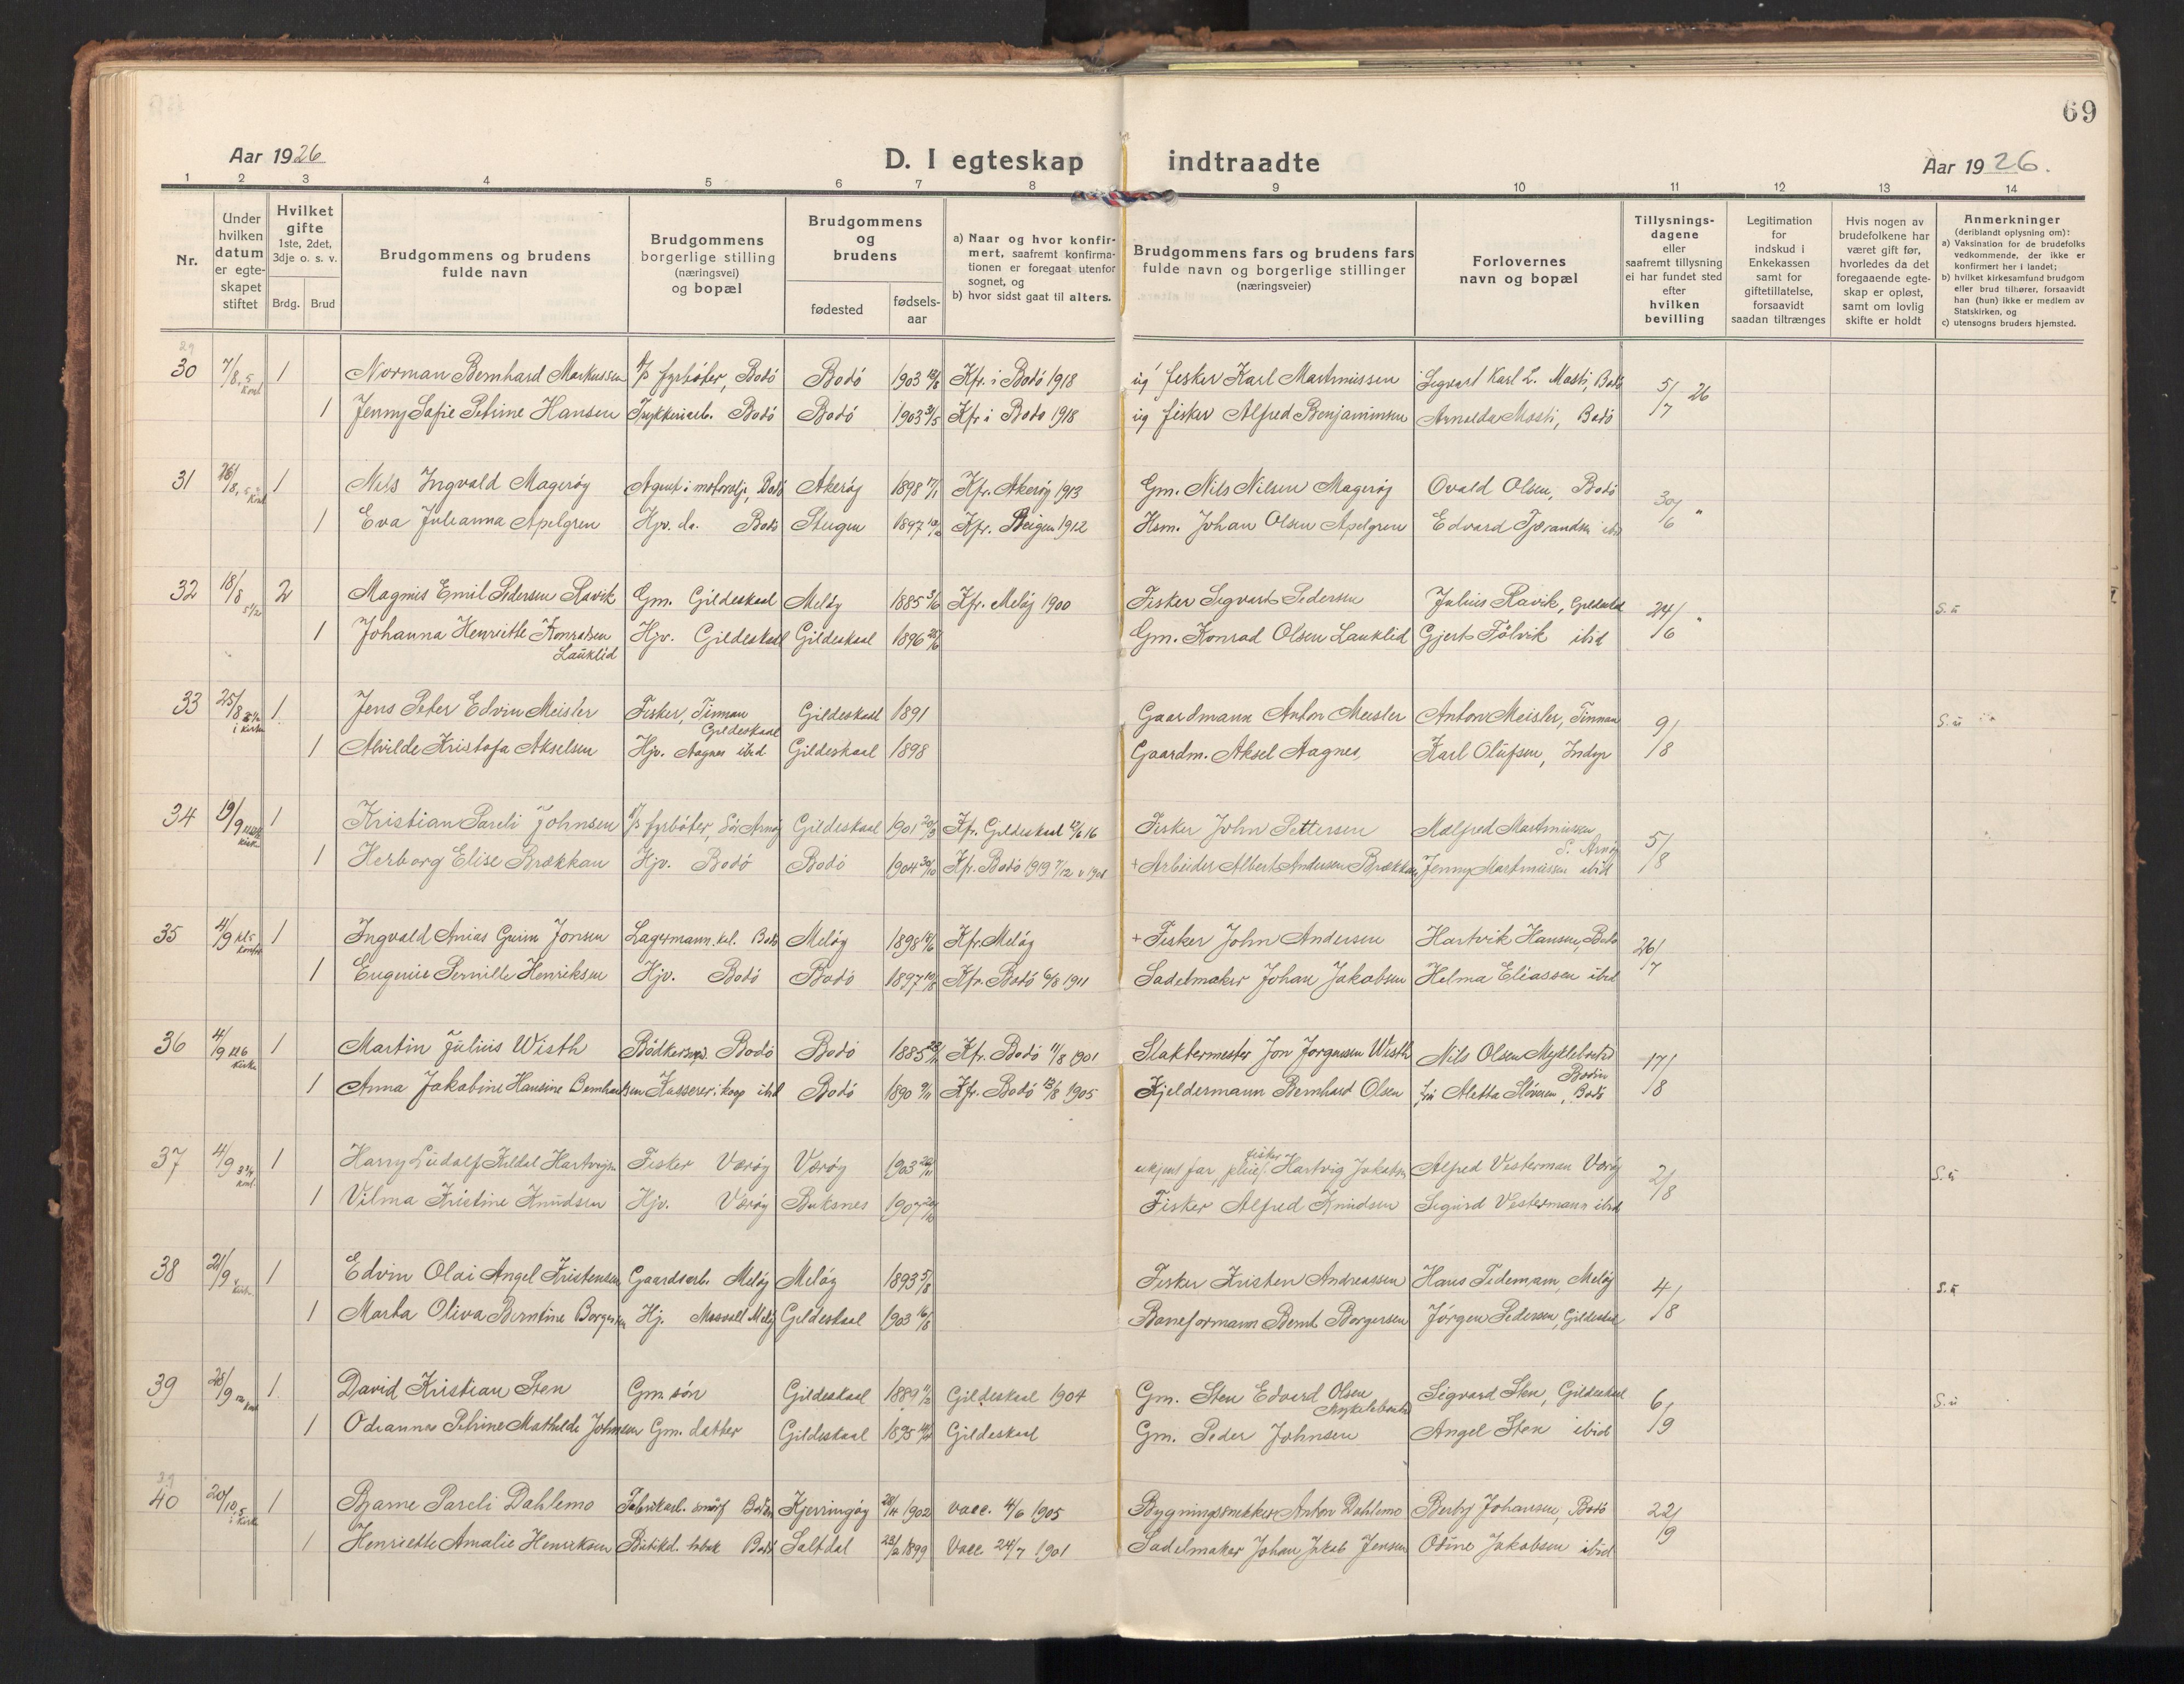 69
Aar 1926 D. I egteskap indtraadte Aar 1926.
1 2 3 4 5 6 7 8 9 10 11 12 13 14
Nr.
Under hvilken datum er egteskapet stiftet
Hvilket gifte 1ste, 2det, 3dje o. s. v.
Brdg. Brud
Brudgommens og brudens fulde navn
Brudgommens borgerlige stilling (næringsvei) og bopæl
Brudgommens og brudens
fødested fødselsaar
a) Naar og hvor konfirmert, saafremt konfirmationen er foregaat utenfor sognet, og
b) hvor sidst gaat til alters.
Brudgommens fars og brudens fars fulde navn og borgerlige stillinger (næringsveier)
Forlovernes navn og bopæl
Tillysningsdagene eller saafremt tillysning ei har fundet sted efter hvilken bevilling
Legitimation for indskud i Enkekassen samt for giftetillatelse, forsaavidt saadan tiltrænges
Hvis nogen av brudefolkene har været gift før, hvorledes da det foregaaende egteskap er opløst, samt om lovlig skifte er holdt
Anmerkninger (deriblandt oplysning om):
a) Vaksination for de brudefolks vedkommende, der ikke er konfirmert her i landet;
b) hvilket kirkesamfund brudgom eller brud tilhører, forsaavidt han (hun) ikke er medlem av Statskirken, og
c) utensogns bruders hjemsted.
30 7/8 1 Norman Bernhard Markussen fyrbøter, Bodø Bodø 1903 Kfr. i Bodø 1918 fisker Karl Martinussen Sigvart Karl L. Mosti, Bodø 5/7 26
1 Jenny Sofie Petrine Hansen Trykkeriarb. Bodø Bodø 1903 31/5 Kfr i Bodø 1918 fisker Alfred Benjaminsen Arnolda Mosti, Bodø
31 16/8 1 Nils Ingvald Magerøy Agent i motorolje, Bodø Akerøy 1898 17/1 Kfr. Akerøy 1913 Gm. Nils Nilsen Magerøy Ovald Olsen, Bodø 30/6 "
1 Eva Julianna Apelgren Hjv. da. Bodø Steigen 1897 Kfr. Steigen 1912 Hsm. Johan Olsen Apelgren Edvard Tjørandsen ibid
32 18/8 5 1/2 2 Magnus Emil Pedersen Ravik Gm. Gildeskaal Meløy 1885 3/6 Kfr. Meløy 1900 Fisker Sigvart Pedersen Julius Ravik, Gildeskaal 24/6 " S. u
1 Johanna Henriette Konradsen Lauklid Hjv. Gildeskaal Gildeskaal 1896 Gm. Konrad Olsen Lauklid Gjert Følvik ibid
33 25/8 i kirken 1 Jens Peter Edvin Meisler Fisker, Finnan Gildeskaal Gildeskaal 1891 Gaardmann Anton Meisler Anton Meisler, Finnan 9/8 S. u
1 Alvilde Kristofa Akselsen Hjv. Aagnes ibid Gildeskaal 1898 Gaardm. Aksel Aagnes, Karl Olufsen, Indyr
34 19/9 1 Kristian Pareli Johnsen fyrbøter, Sør Arnøy Gildeskaal 1901 20/3 Kfr. Gildeskaal 16 Fisker John Pettersen Malfred Martinussen S. Arnøy 5/8
1 Herborg Elise Brækkan Hjv. Bodø Bodø 1904 30/10 Kfr. Bodø 1919 7/12 v 1908 + Arbeider Albert Andersen Brækkan Jenny Martinussen ibid
35 4/9 kl 5 1 Ingvald Anias Grim Jonsen Lagermann. kol. Bodø Meløy 1898 Kfr. Meløy + Fisker John Andersen Hartvik Hansen, Bodø 26/7
1 Eugenie Pernille Henriksen Hjv. Bodø Bodø 1897 Kfr. Bodø 6/8 1911 Sadelmaker Johan Jakobsen Helma Eliassen ibid
36 4/9 kl 6 kirke 1 Martin Julius Wisth Bødkersvd. Bodø Bodø 1885 Kfr. Bodø 11/8 1901 Slaktermester Jon Jørgensen Wisth Nils Olsen Myklebostad Bodin 17/8
1 Anna Jakobine Hansine Bernhardsen Kasserer i koop ibid Bodø 1890 9/11 Kfr. Bodø 13/8 1905 Kjeldermann Bernhard Olsen fru Aletta Støvesen, Bodø
37 4/9 1 Harry Ludolf Kildal Hartvigsen Fisker Værøy Værøy 1903 ukjent far, pleief. fisker Hartvig Jakobsen Alfred Vesterman Værøy 2/8 S. u
1 Vilma Kristine Knudsen Hjv. Værøy Buksnes 1907 Fisker Alfred Knudsen Sigurd Vestermann ibid
38 21/9 1 Edvin Olai Angel Kristensen Gaardsarb. Meløy Meløy 1893 5/8 Fisker Kristen Andreassen Hans Tidemann, Meløy 4/8 S. u
1 Marta Oliva Berntine Borgersen Hj. Mosvoll Meløy Gildeskaal 1903 16/8 Baneformann Bernt Borgersen Jørgen Pedersen, Gildeskaal
39 28/9 1 David Kristian Sten Gm. søn Gildeskaal 1889 11/2 Gildeskaal 1904 Gm. Sten Edvard Olsen Myklebostad Sigvard Sten, Gildeskaal 6/9 S. u
1 Odianna Petrine Mathilde Johnsen Gm. datter Gildeskaal 1895 Gildeskaal Gm. Peder Johnsen Angel Sten ibid
40 20/10 5 i kirk 1 Bjarne Pareli Dahlemo Fabrikarb. smørf Bodin Kjerringøy 1902 vacc. 4/6 1905 Bygningssnekker Anton Dahlemo Berby Johansen, Bodø 22/9
1 Henriette Amalie Henriksen Butikd. tobak Bodø Saltdal 23/2 1899 Vacc 24/7 1901 Sadelmaker Johan Jakob Jensen Odine Jakobsen ibid